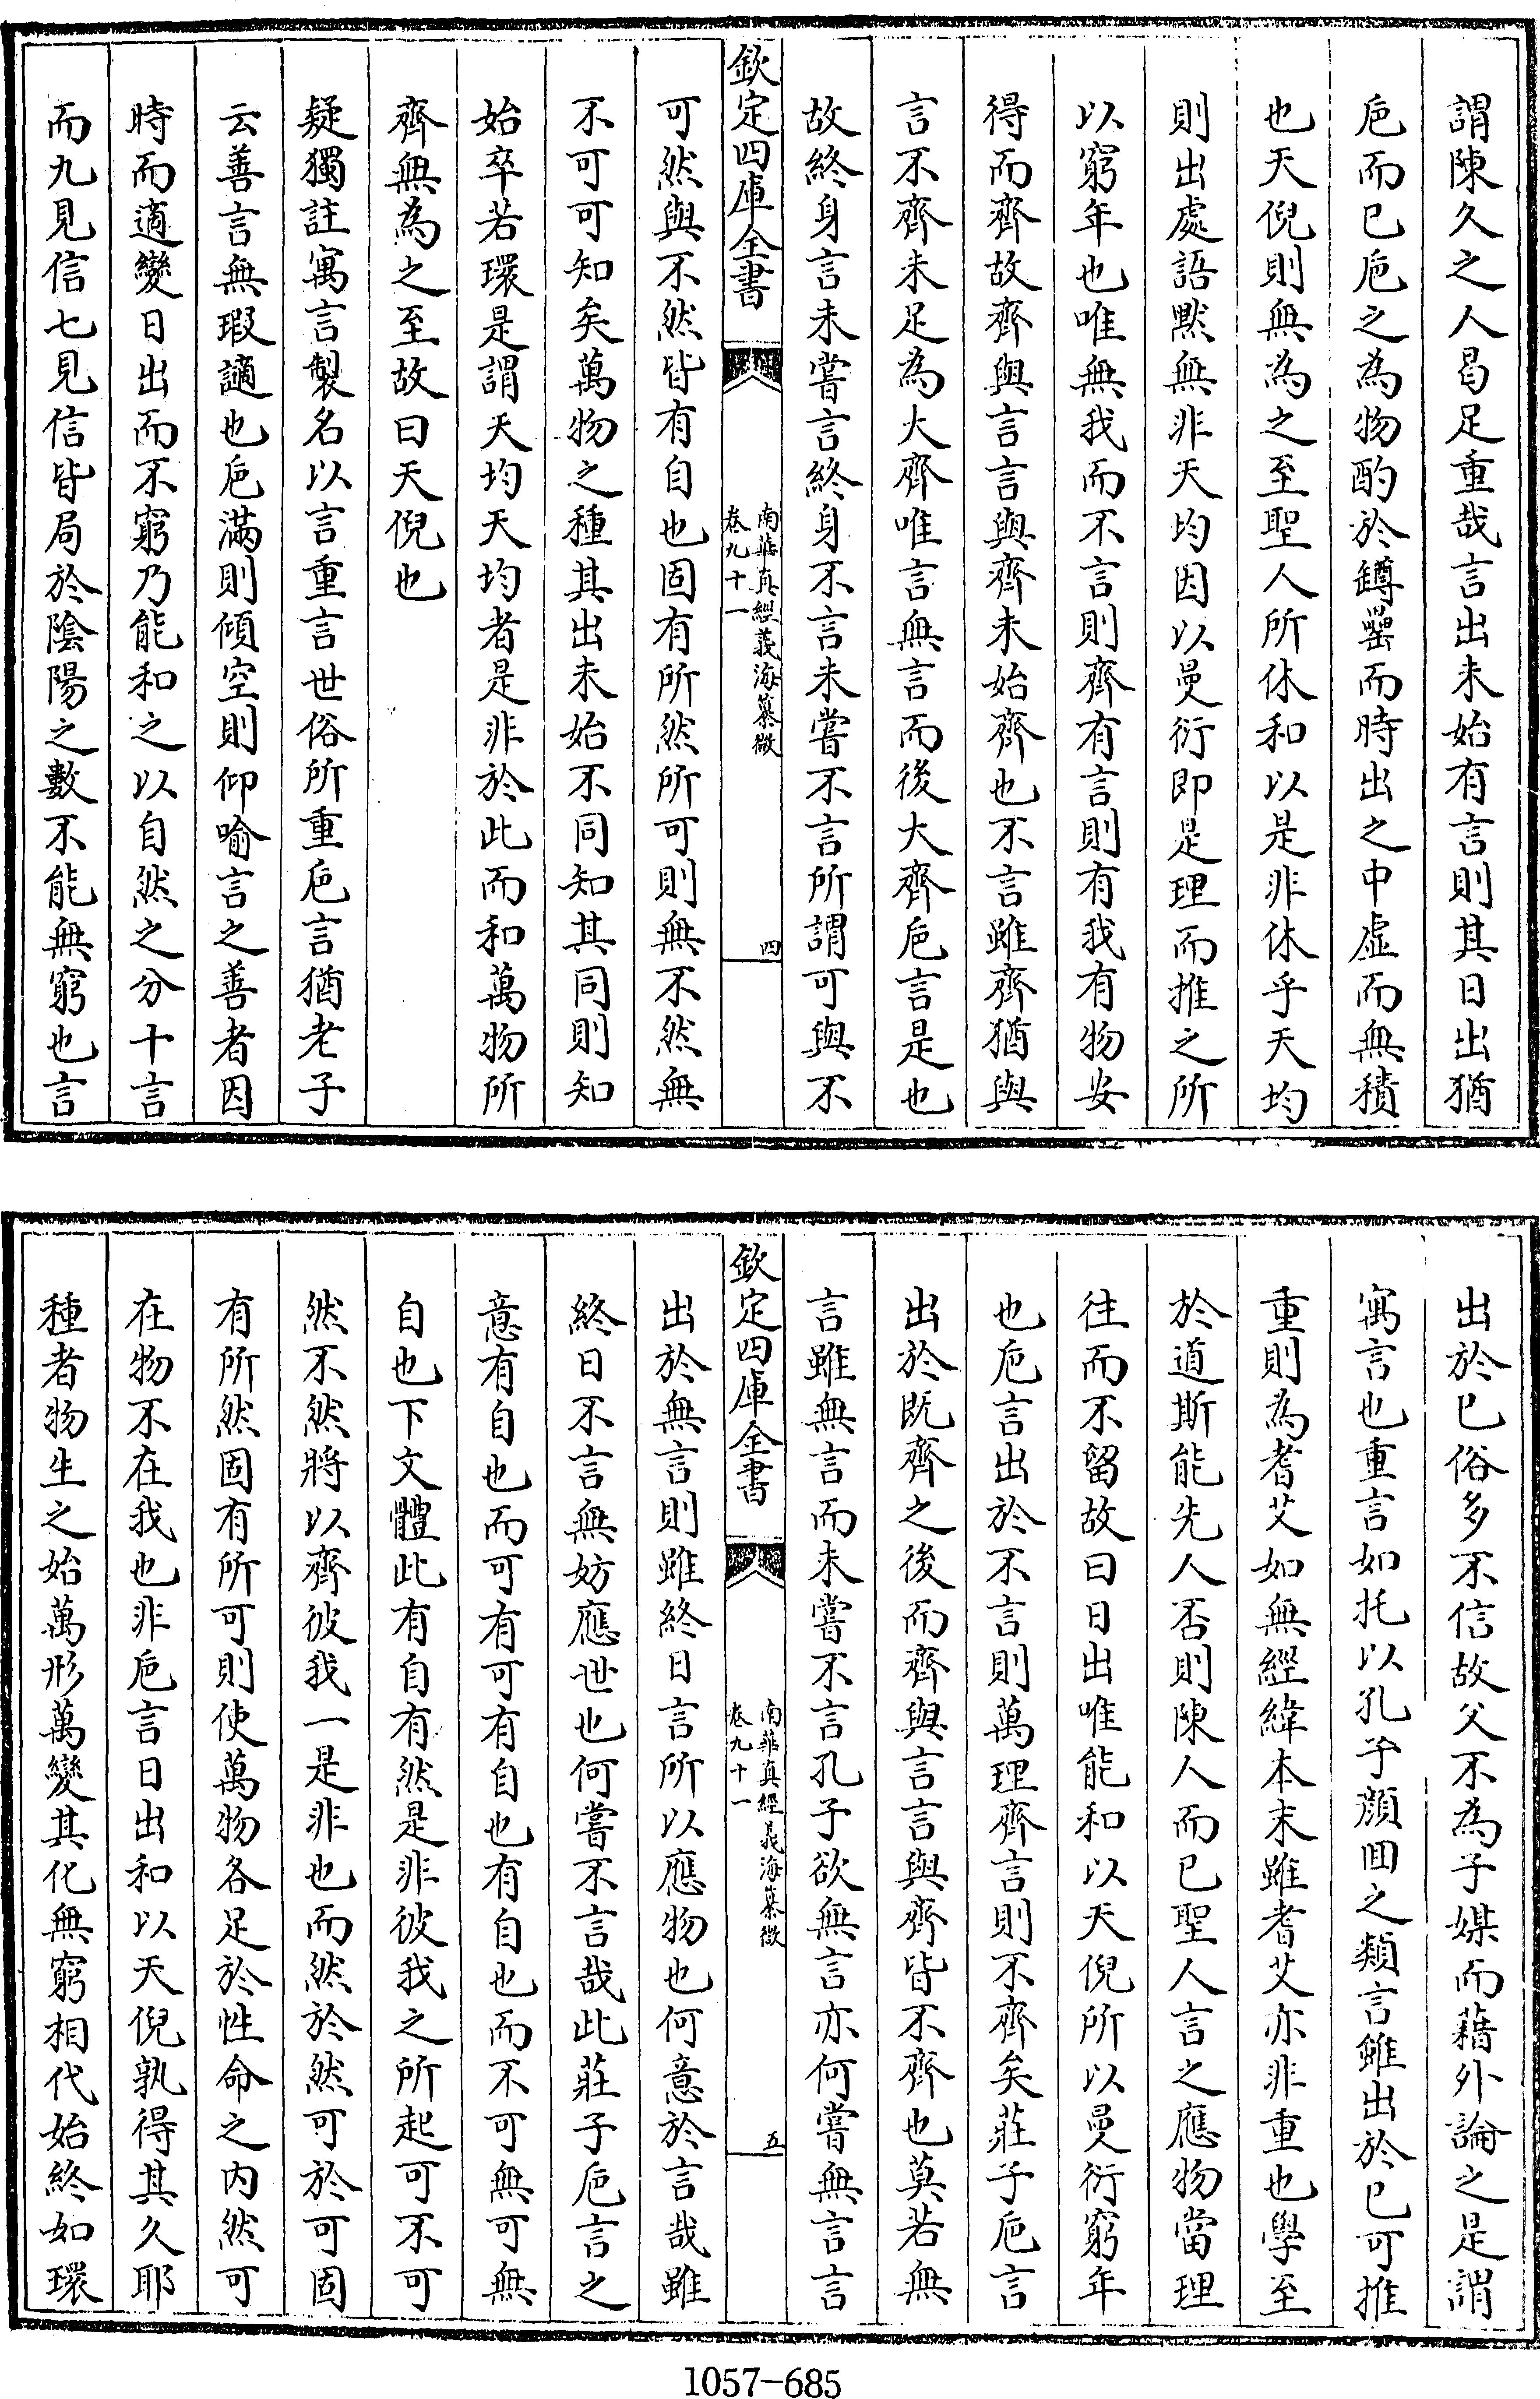 謂陳久之人曷足重哉言出未始有言則其日出猶
巵而已巵之為物酌於罇罍而時出之中虚而無積
也天倪則無為之至聖人所休和以是非休乎天均
則出處語黙無非天均因以曼衍即是理而推之所
以窮年也唯無我而不言則齊有言則有我有物安
得而齊故齊與言言與齊未始齊也不言雖齊猶與
言不齊未足為大齊唯言無言而後大齊巵言是也
故終身言未嘗言終身不言未嘗不言所謂可與不
欽定四庫全書
南華真經義海纂微
卷九十一
四
可然與不然皆有自也固有所然所可則無不然無
不可可知矣萬物之種其出未始不同知其同則知
始卒若環是謂天均天均者是非於此而和萬物所
齊無為之至故曰天倪也
疑獨註寓言製名以言重言世俗所重巵言猶老子
云善言無瑕讁也巵滿則傾空則仰喻言之善者因
時而適變日出而不窮乃能和之以自然之分十言
而九見信七見信皆局於陰陽之數不能無窮也言
出於已俗多不信故父不為子媒而藉外論之是謂
寓言也重言如托以孔子顔囬之類言雖出於已可推
重則為耆艾如無經緯本末雖耆艾亦非重也學至
於道斯能先人否則陳人而已聖人言之應物當理
往而不留故曰日出唯能和以天倪所以曼衍窮年
也巵言出於不言則萬理齊言則不齊矣莊子巵言
出於既齊之後而齊與言言與齊皆不齊也莫若無
言雖無言而未嘗不言孔子欲無言亦何嘗無言言
欽定四庫全書
南華真經義海纂微
卷九十一
五
出於無言則雖終日言所以應物也何意於言哉雖
終日不言無妨應世也何嘗不言哉此莊子巵言之
意有自也而可有可有自也有自也而不可無可無
自也下文體此有自有然是非彼我之所起可不可
然不然將以齊彼我一是非也而然於然可於可固
有所然固有所可則使萬物各足於性命之内然可
在物不在我也非巵言日出和以天倪孰得其久耶
種者物生之始萬形萬變其化無窮相代始終如環
1057-685